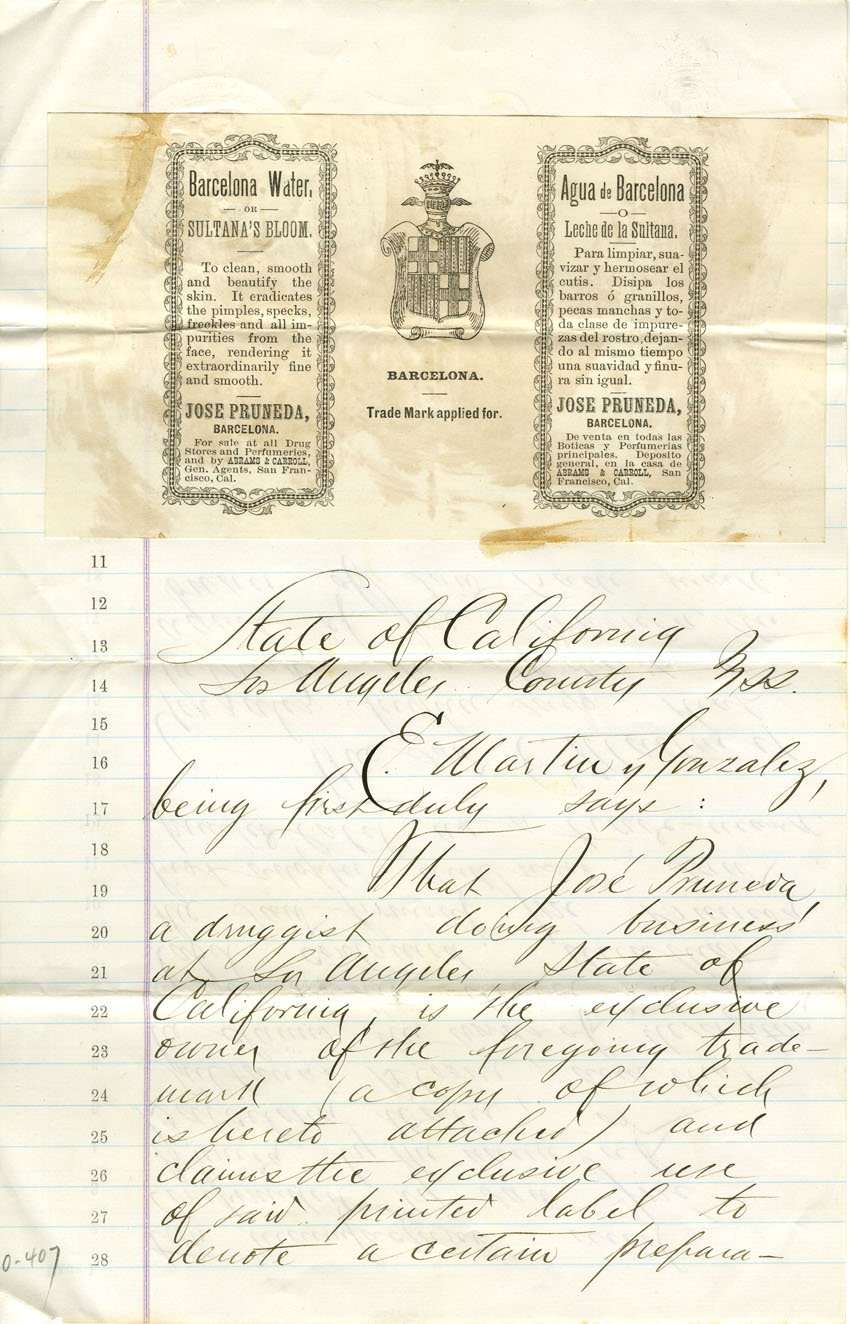 Barcelona Water,
— OR —
SULTANA'S BLOOM.
To clean, smooth
and beautify the
skin. It eradicates
the pimples, specks,
freckles and all im-
purities from the
face, rendering it
extraordinarily fine
and smooth.
JOSE PRUNEDA,
BARCELONA.
For sale at all Drug
Stores and Perfumeries,
and by ABRAMS & CARROLL,
Gen. Agents, San Fran-
cisco, Cal.
BARCELONA.
Trade Mark applied for.
Agua de Barcelona
—O—
Leche de la Sultana.
Para limpiar, sua-
vizar y hermosear el
cutis. Disipa los
barros ó granillos,
pecas manchas y to-
da clase de impure-
zas del rostro, dejan-
do al mismo tiempo
una suavidad y finu-
ra sin igual.
JOSE PRUNEDA,
BARCELONA.
De venta en todas las
Boticas y Perfumerias
principales. Deposito
general, en la casa de
ABRAMS & CARROLL, San
Francisco, Cal.
11
12
13 State of California
14 Los Angeles County } ss.
15
16 E. Martin y Gonzalez,
17 being first duly says :
18
19 That José Pruneda,
20 a druggist doing business
21 at Los Angeles State of
22 California, is the exclusive
23 owner of the foregoing trade-
24 mark (a copy of which
25 is hereto attached) and
26 claims the exclusive use
27 of said printed label to
28 denote a certain prepara-
0-407